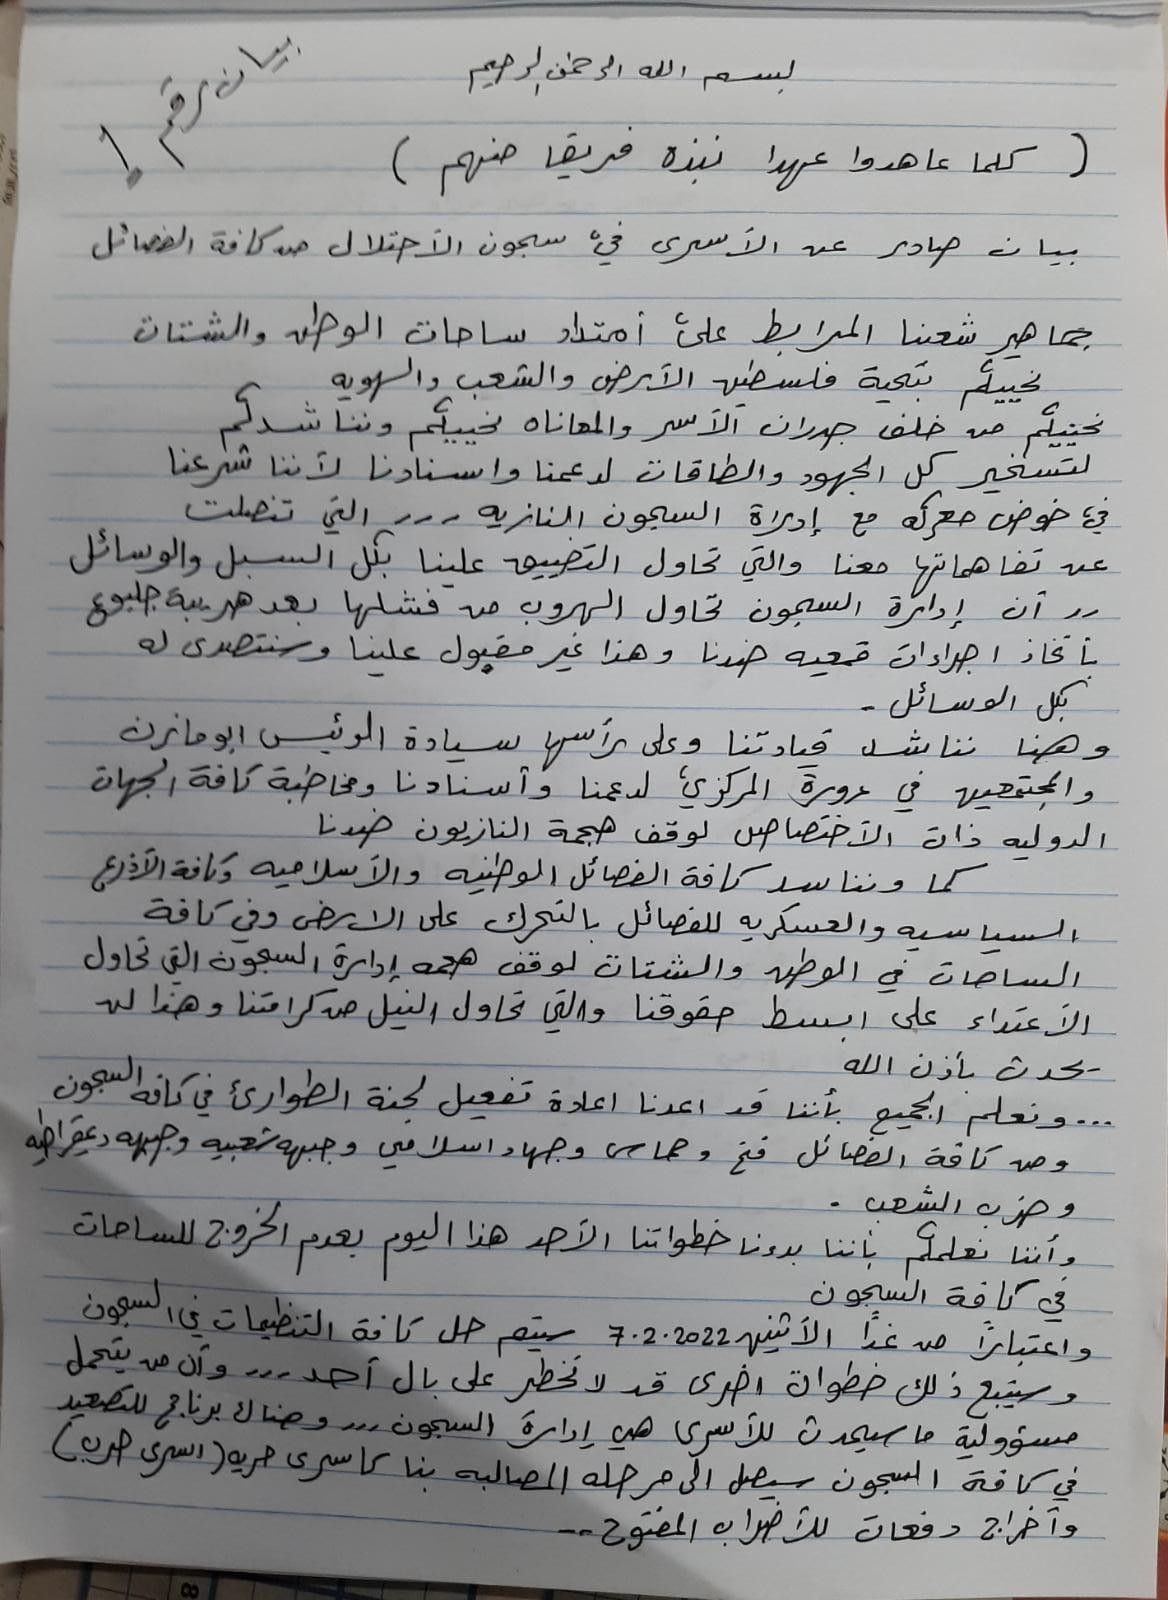 بيان رقم 1
بسم الله الرحمن الرحيم
( كلما عاهدوا عهدا نبذه فريقا منهم )
بيان صادر عن الأسرى في سجون الأحتلال من كافة الفصائل
جماهير شعبنا المرابط على أمتداد ساحات الوطن والشتات
نحييكم بتحية فلسطين الأرض والشعب والهويه
نحييكم من خلف جدران الأسر والمعاناه نحييكم ونناشدكم
لتسخير كل الجهود والطاقات لدعمنا واسنادنا لأننا شرعنا
في خوض معركه مع إدارة السجون النازيه ... التي تنصلت
عن تفاهماتها معنا والتي تحاول التضييق علينا بكل السبل والوسائل
.. أن إدارة السجون تحاول الهروب من فشلها بعد هريبة جلبوع
بأتخاذ اجراءات قمعيه ضدنا وهذا غير مقبول علينا وسنتصدى له
بكل الوسائل -
وهنا نناشد قيادتنا وعلى رأسها سيادة الرئيس ابو مازن
والمجتمعين في دورة المركزي لدعمنا وأسنادنا ومخاطبة كافة الجهات
الدوليه ذات الأختصاص لوقف هجمة النازيون ضدنا
كما ونناسد كافة الفصائل الوطنيه والأسلاميه وكافة الأذرع
السياسيه والعسكريه للفصائل بالتحرك على الارض وفي كافة
الساحات في الوطن والشتات لوقف هجمه إدارة السجون التي تحاول
الأعتداء على ابسط حقوقنا والتي تحاول النيل من كرامتنا وهذا لن
يحدث بأذن الله
... ونعلم الجميع بأننا قد اعدنا اعادة تفعيل لجنة الطوارئ في كافه السجون
ومن كافة الفصائل فتح وحماس وجهاد اسلامي وجبهه شعبيه وجبهه دمقراطيه
وحزب الشعب .
وأننا نعلمكم بأننا بدءنا خطواتنا الأحد هذا اليوم بعدم الخروج للساحات
في كافة السجون
واعتباراً من غداً الأثنين 7.2.2022 سيتم حل كافة التنظيمات في السجون
وسيتبع ذلك خطوات اخرى قد لا تخطر على بال أحد ... وأن من يتحمل
مسؤولية ما سيحدث للأسرى هي إدارة السجون ... وهناك برنامج للتصعيد
في كافة السجون سيصل الى مرحله المطالبه بنا كاسرى حريه ( اسرى حرب )
وأخراج دفعات للأضراب المفتوح --